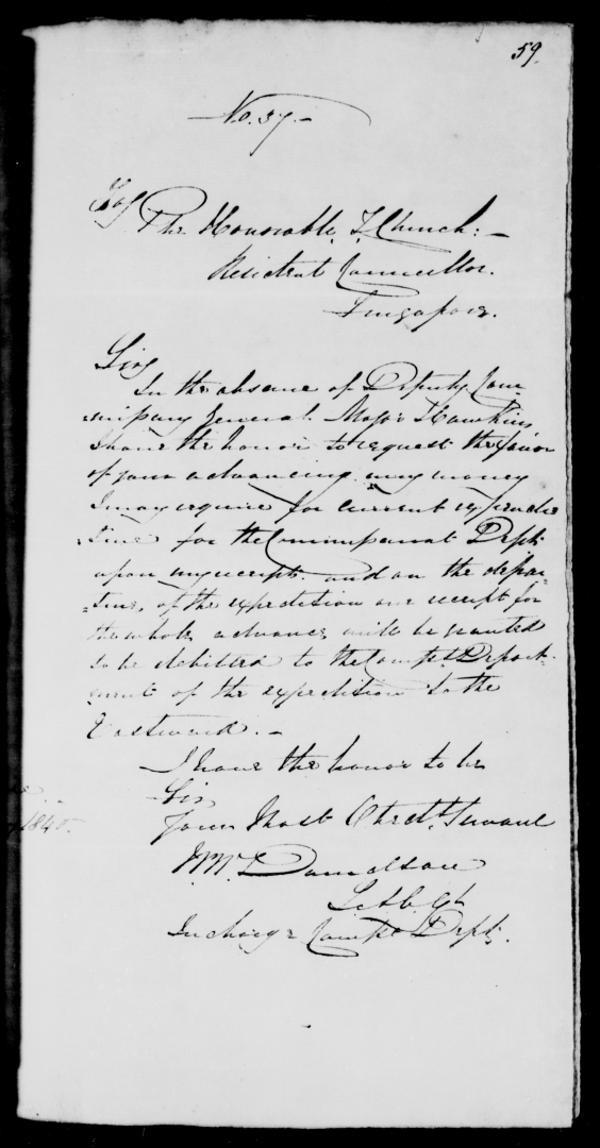 59.
No. 37.—
To,
The Honorable T, Church:—
Resident Councillor.
Singapore.
Sir,
In the absence of Deputy Com-
-missary General Major Hawkins,
I have the honor to request the favor
of your advancing any money
I may require for current expendi-
-ture for the Commissariat Dept.
upon my receipt. and on the depar-
-ture, of the expedition one receipt for
the whole, advance, will be granted
to be debitted to the Deport-
-ment of the expedition to the
Eastward.—
I have the honor to be
Sir
Your Most Obedt. Servant
Donaldson
In charge Dept.
1840.